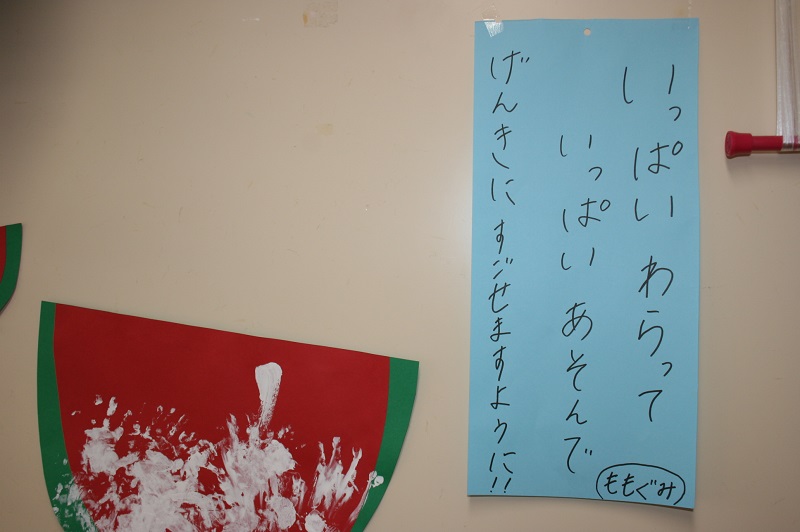 いっぱい わらって
いっぱい あそんで
げんきに すごせますように!!
ももぐみ